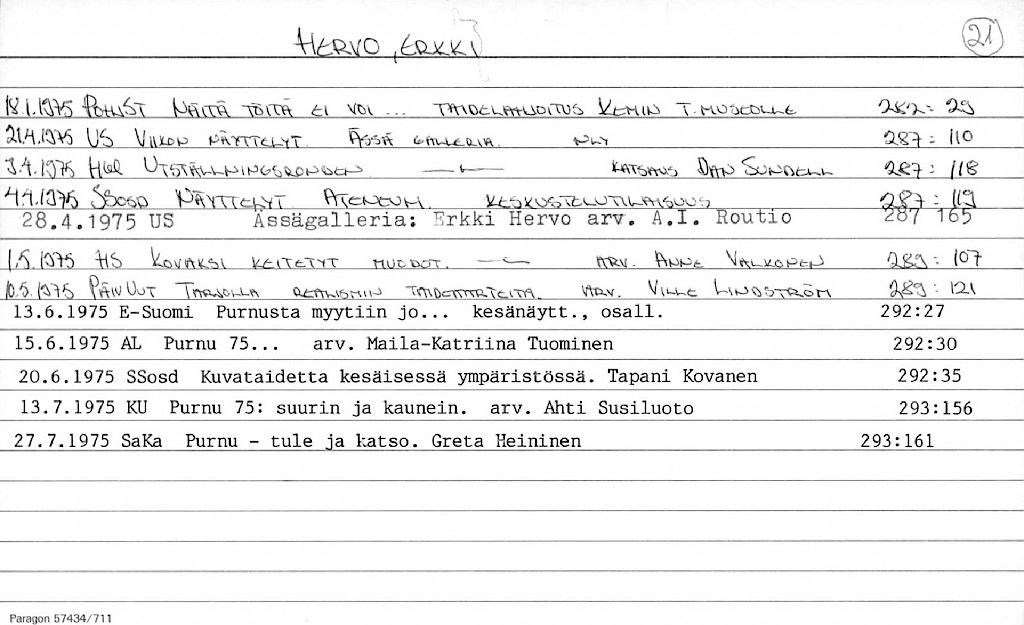 HERVO, ERKKI
21
18.1.1975 POHJST NÄITÄ TÖITÄ EI VOI ... TAIDELAHJOITUS KEMIN T.MUSEOLLE 282: 29
21.4.1975 US VIIKON NÄYTTELYT. ÄSSÄ GALLERIA. NLY 287: 110
3.4.1975 Hbl UTSTÄLLNINGSRONDEN —"— KATSAUS DAN SUNDELL 287: 118
4.4.1975 SSosd NÄYTTELYT ATENEUM. KESKUSTELUTILAISUUS 287: 119
28.4.1975 US Ässägalleria: Erkki Hervo arv. A.I. Routio 287 165
1.5.1975 HS KOVAKSI KEITETYT MUODOT. —"— ARV. ANNE VALKONEN 289: 107
10.5.1975 PÄIVUUT TARJOLLA REALISMIN TAIDEAARTEITA. ARV. VILLE LINDSTRÖM 289: 121
13.6.1975 E-Suomi Purnusta myytiin jo... kesänäytt., osall. 292:27
15.6.1975 AL Purnu 75... arv. Maila-Katriina Tuominen 292:30
20.6.1975 SSosd Kuvataidetta kesäisessä ympäristössä. Tapani Kovanen 292:35
13.7.1975 KU Purnu 75: suurin ja kaunein. arv. Ahti Susiluoto 293:156
27.7.1975 SaKa Purnu - tule ja katso. Greta Heininen 293:161
Paragon 57434/711